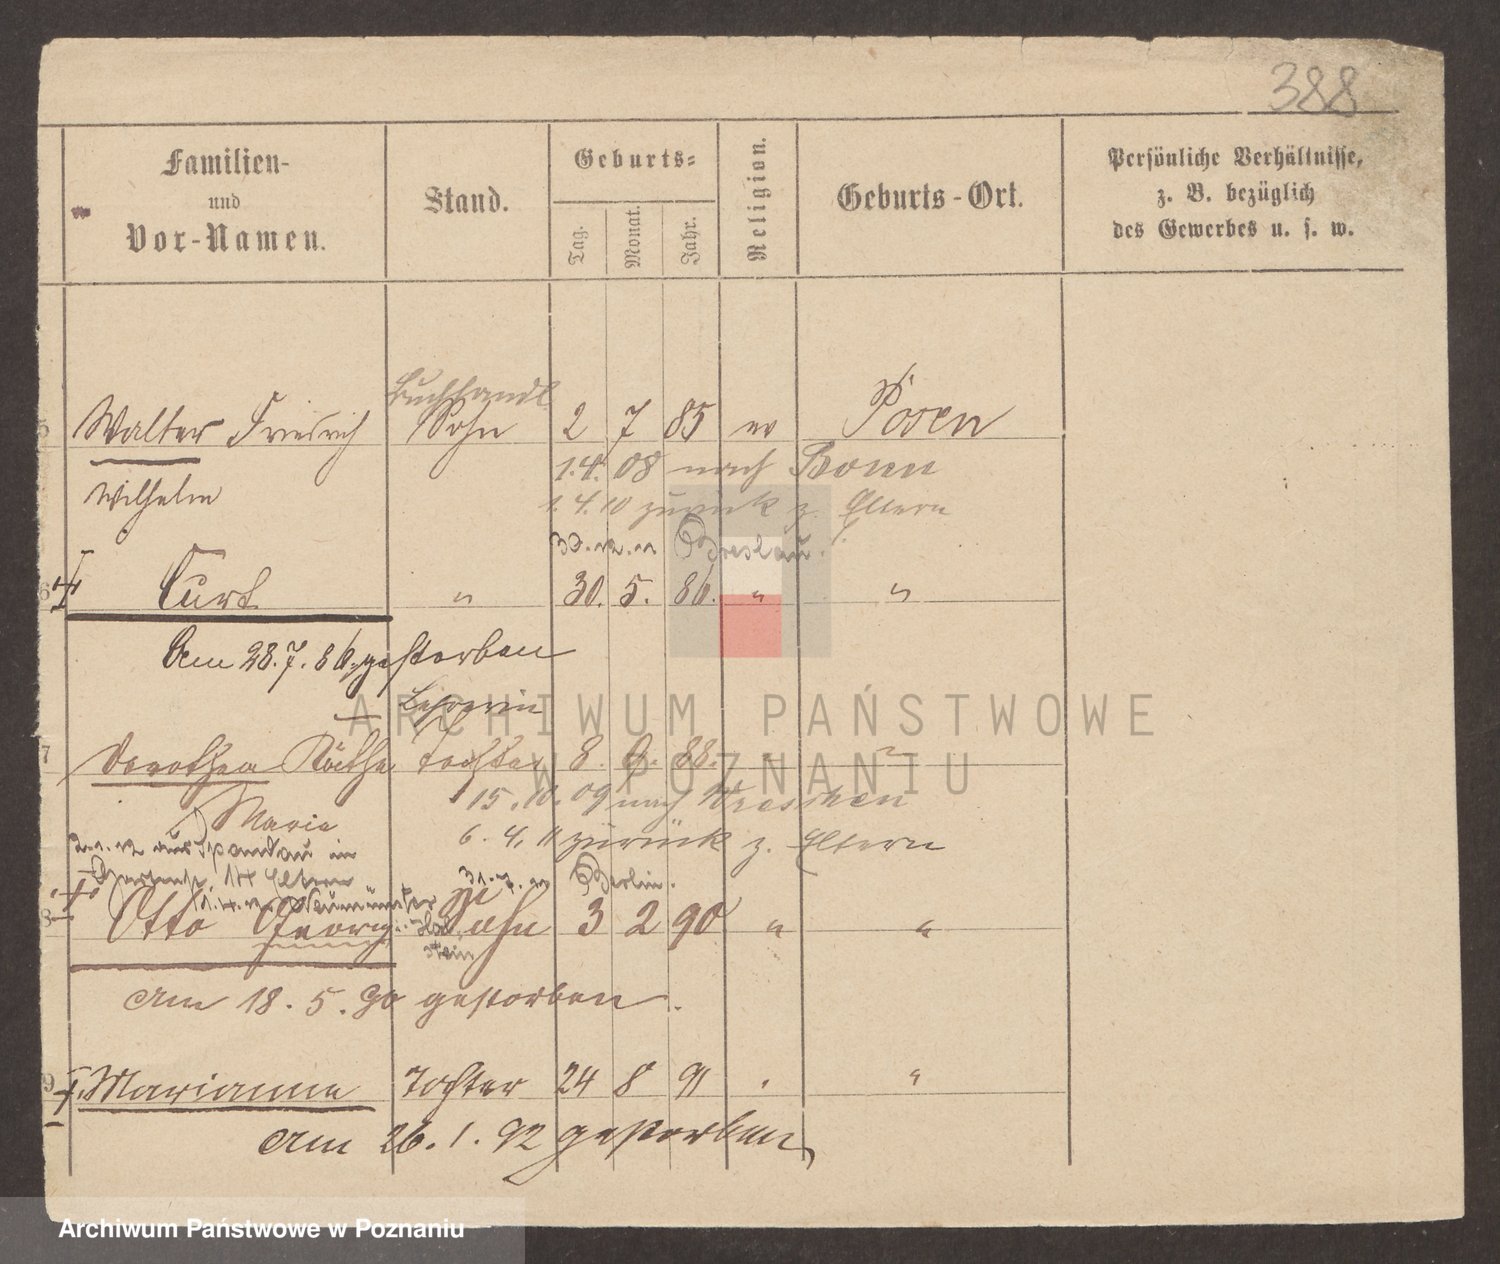 388
Familien-
und
Vor-Namen.
Stand.
Geburts-
Tag.
Monat.
Jahr.
Religion.
Geburts-Ort.
Persönliche Verhältnisse,
z. B. bezüglich
des Gewerbes u. s. w.
Buchhandl.
5 Walter Friedrich Sohn 2 7 85 ev Posen
1.4.08 nach Bonn
Wilhelm
1.4.10 zurück z. Eltern
30.12.11 Breslau.
6 Curt " 30. 5. 86. " "
Am 28.7.86. gestorben
ARCHIWUM PAŃSTWOWE
W POZNANIU
Lehrerin
7 Dorothea Käthe Tochter 8. 9. 88. " "
15.10.09 nach Wreschen
Marie
6.4.11 zurück z. Eltern
2.1.12 aus Spandau in
Eltern
31.7. Berlin.
1.4.12 Neumünster
Holstein
8 Otto Georg Sohn 3 2 90 " "
am 18.5.90 gestorben.
9 Marianne Tochter 24 8 91 "
am 26.1.92 gestorben
Archiwum Państwowe w Poznaniu